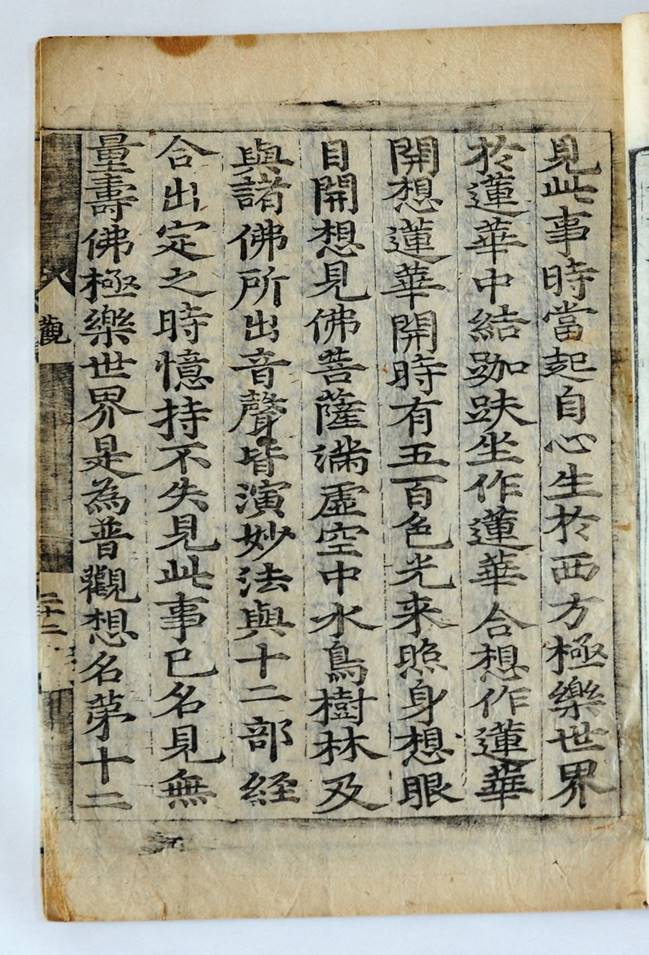 見此事時當起自心生於西方極樂世界
於蓮華中結跏趺坐作蓮華合想作蓮華
開想蓮華開時有五百色光来照身想眼
目開想見佛菩薩滿虛空中水鳥樹林及
與諸佛所出音聲皆演妙法與十二部経
合出定之時憶持不失見此事已名見無
量壽佛極樂世界是為普觀想名苐十二
觀
二十二